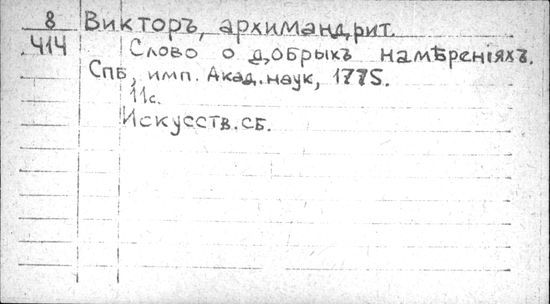 8 Викторъ, архимандрит.
414 Слово о добрыхъ намѣренiяхъ.
Спб, имп. Акад. наук, 1775.
11с.
Искусств. сб.